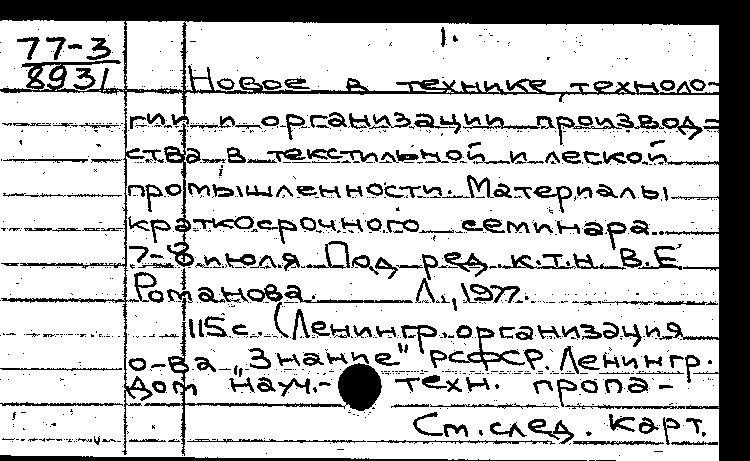 1.
77-3
8931
Новое в технике, техноло-
гии и организации производ-
ства в текстильной и легкой
промышленности. Материалы
краткосрочного семинара
7-8 июля Под ред. к.т.н В.Е
Романова. Л., 1977.
115с. (Ленингр. организация
о-ва „Знание" РСФСР. Ленингр.
Дом науч.- техн. пропа-
См. след. карт.